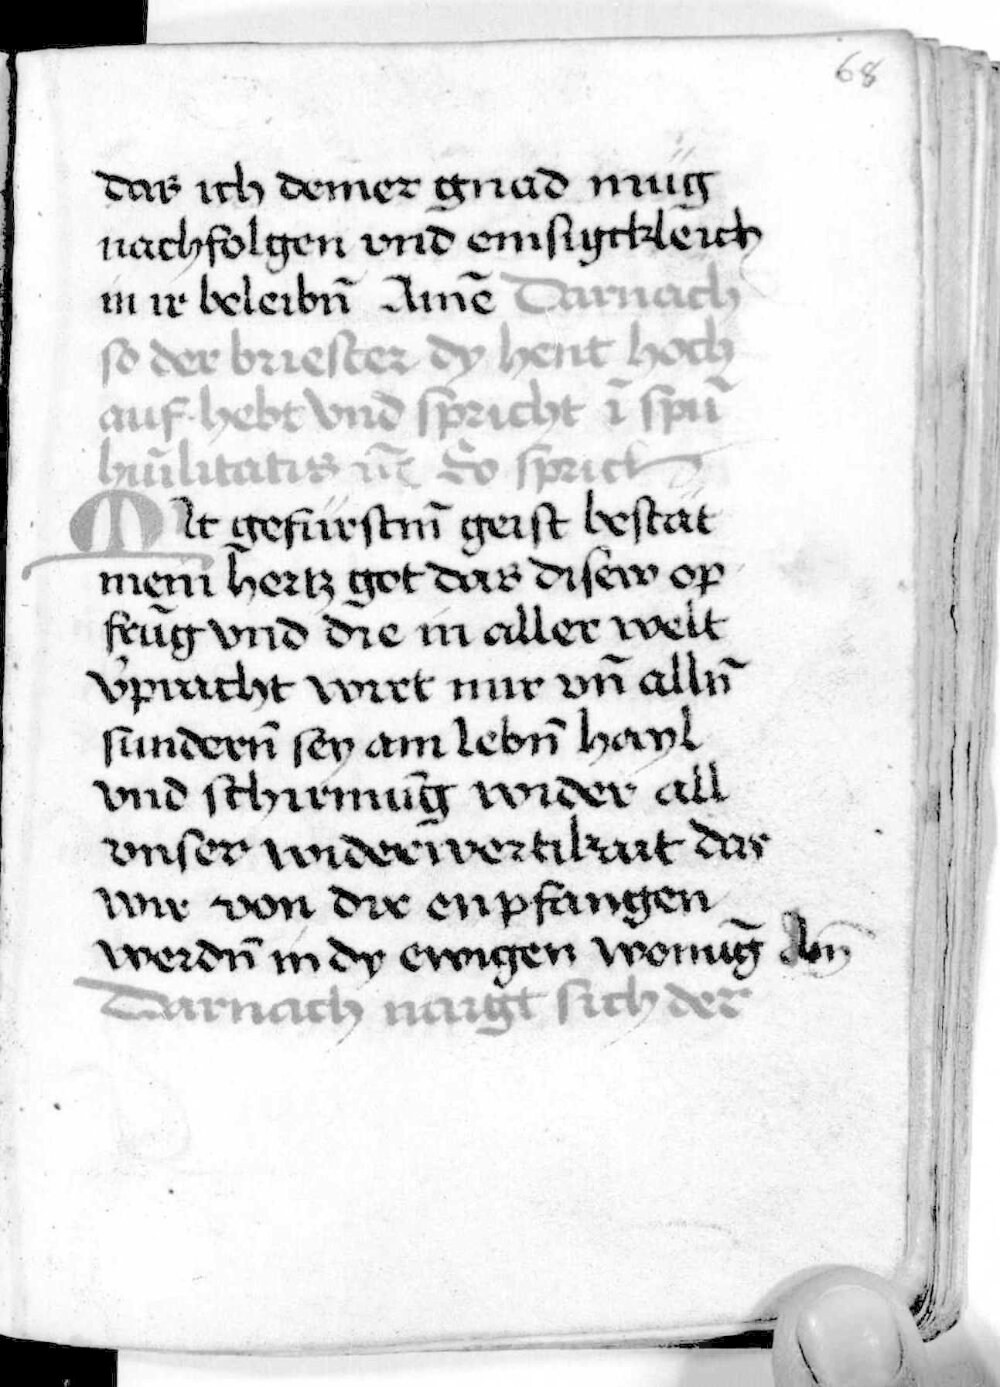 68
das ich deiner gnad müg
nachfolgen vnd emsigckleich
in ir beleibn̄ Amē Darnach
so der briester dy hent hoch
auf hebt vnd spricht ī spū
hūilitatis So sprich
Mit gefürstm̄ geist bestät
mein hertz got das disew op
frūg vnd die in aller welt
v̓pracht wirt mir vn̄ alln̄
sundern̄ sey am lebn̄ hayl
vnd schirmūg wider all
vnser widerwertikait das
wir von dir enpfangen
werdn̄ in dy ewigen wonūg Am̄
Darnach naigt sich der